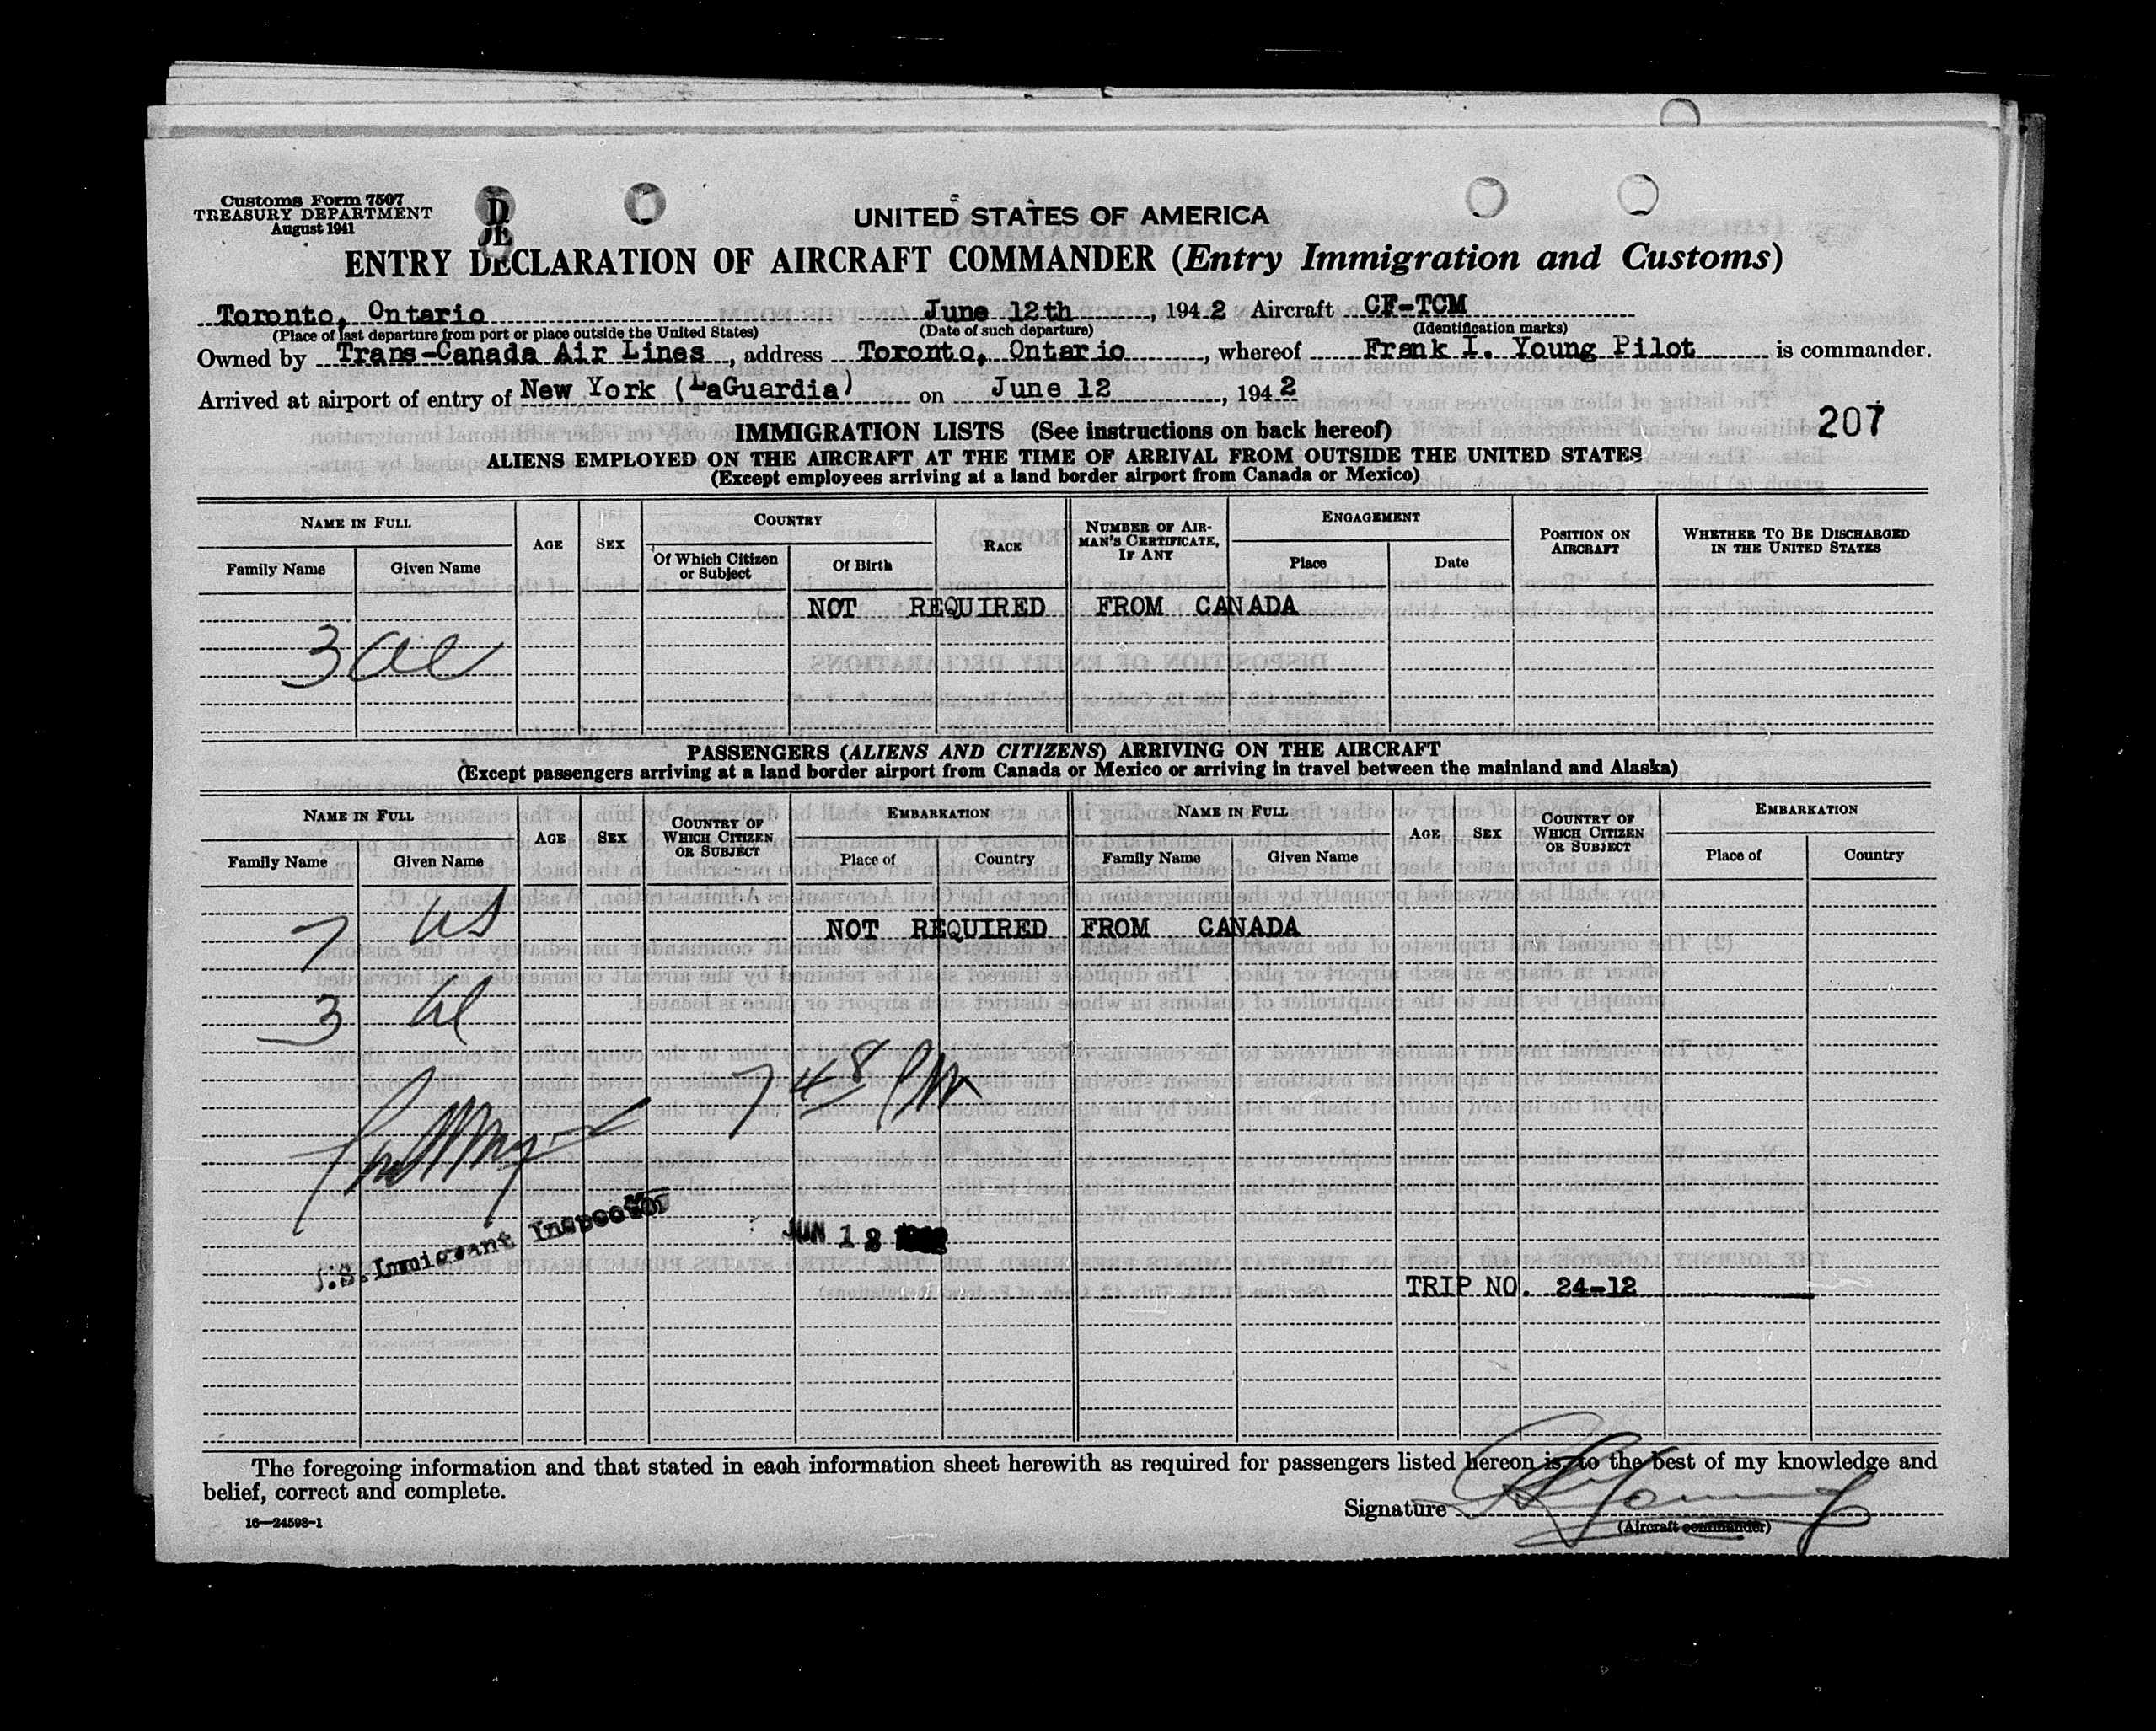 Customs Form 7507
TREASURY DEPARTMENT
August 1941
UNITED STATES OF AMERICA
ENTRY DECLARATION OF AIRCRAFT COMMANDER (Entry Immigration and Customs)
Toronto, Ontario June 12th, 1942 Aircraft CF-TCM
(Place of last departure from port or place outside the United States) (Date of such departure) (Identification marks)
Owned by Trans-Canada Air Lines, address Toronto, Ontario, whereof Frank I. Young Pilot is commander.
Arrived at airport of entry of New York (LaGuardia) on June 12, 1942
207
IMMIGRATION LISTS (See instructions on back hereof)
ALIENS EMPLOYED ON THE AIRCRAFT AT THE TIME OF ARRIVAL FROM OUTSIDE THE UNITED STATES
(Except employees arriving at a land border airport from Canada or Mexico)
NAME IN FULL AGE SEX COUNTRY RACE NUMBER OF AIRMAN'S CERTIFICATE, IF ANY ENGAGEMENT POSITION ON AIRCRAFT WHETHER TO BE DISCHARGED IN THE UNITED STATES
Family Name Given Name Of Which Citizen or Subject Of Birth Place Date
NOT REQUIRED FROM CANADA
3
PASSENGERS (ALIENS AND CITIZENS) ARRIVING ON THE AIRCRAFT
(Except passengers arriving at a land border airport from Canada or Mexico or arriving in travel between the mainland and Alaska)
NAME IN FULL AGE SEX COUNTRY OF WHICH CITIZEN OR SUBJECT EMBARKATION NAME IN FULL AGE SEX COUNTRY OF WHICH CITIZEN OR SUBJECT EMBARKATION
Family Name Given Name Place of Country Family Name Given Name Place of Country
7 US
NOT REQUIRED FROM CANADA
3
7 48 PM
U.S. Immigrant Inspector
JUN 12 1942
TRIP NO. 24-12
The foregoing information and that stated in each information sheet herewith as required for passengers listed hereon is, to the best of my knowledge and
belief, correct and complete.
Signature
(Aircraft commander)
16—24598-1